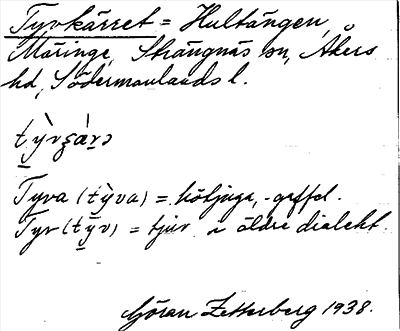 Tyvkärret = Hultängen,
Märinge, Strängnäs sn, Åkers
hd, Södermanlands l.
Tyva (tỳva) = hötjuga, -gaffel.
Tyv (ty̱̆v) = tjuv i äldre dialekt.
Göran Zetterberg 1938.